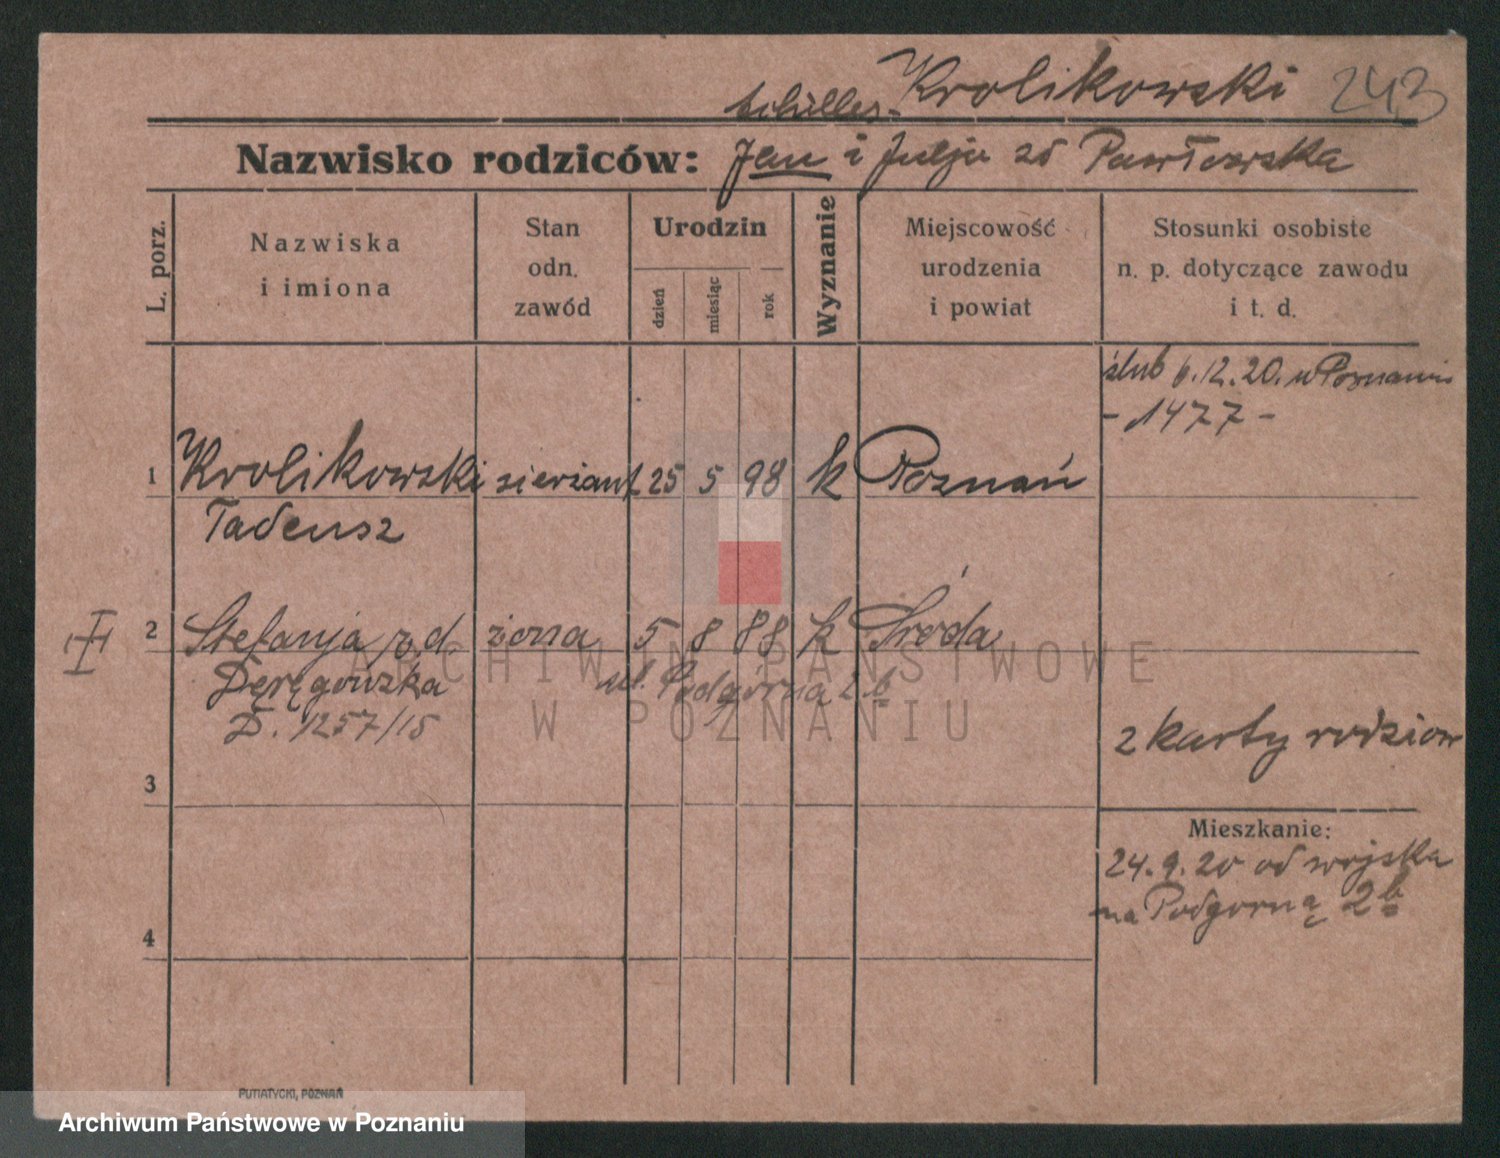 Krolikowski 243
Achilles-
Nazwisko rodziców: Jan i Julja zd Pawłowska
L. porz.
Nazwiska
i imiona
Stan
odn.
zawód
Urodzin
dzień
miesiąc
rok
Wyznanie
Miejscowość
urodzenia
i powiat
Stosunki osobiste
n. p. dotyczące zawodu
i t. d.
ślub 6.12.20. w Poznaniu
- 1477 -
1 Krolikowski sierżant 25 5 98 k Poznań
Tadeusz
2 Stefanja z.d. żona 5 8 88 k Środa
ul. Podgórna 2b
D. 1257/15
2 karty rodziców
3
Mieszkanie:
24.9.20 od wojska
na Podgorną 2b
4
PUTIATYCKI, POZNAŃ
ARCHIWUM PAŃSTWOWE
W POZNANIU
Archiwum Państwowe w Poznaniu